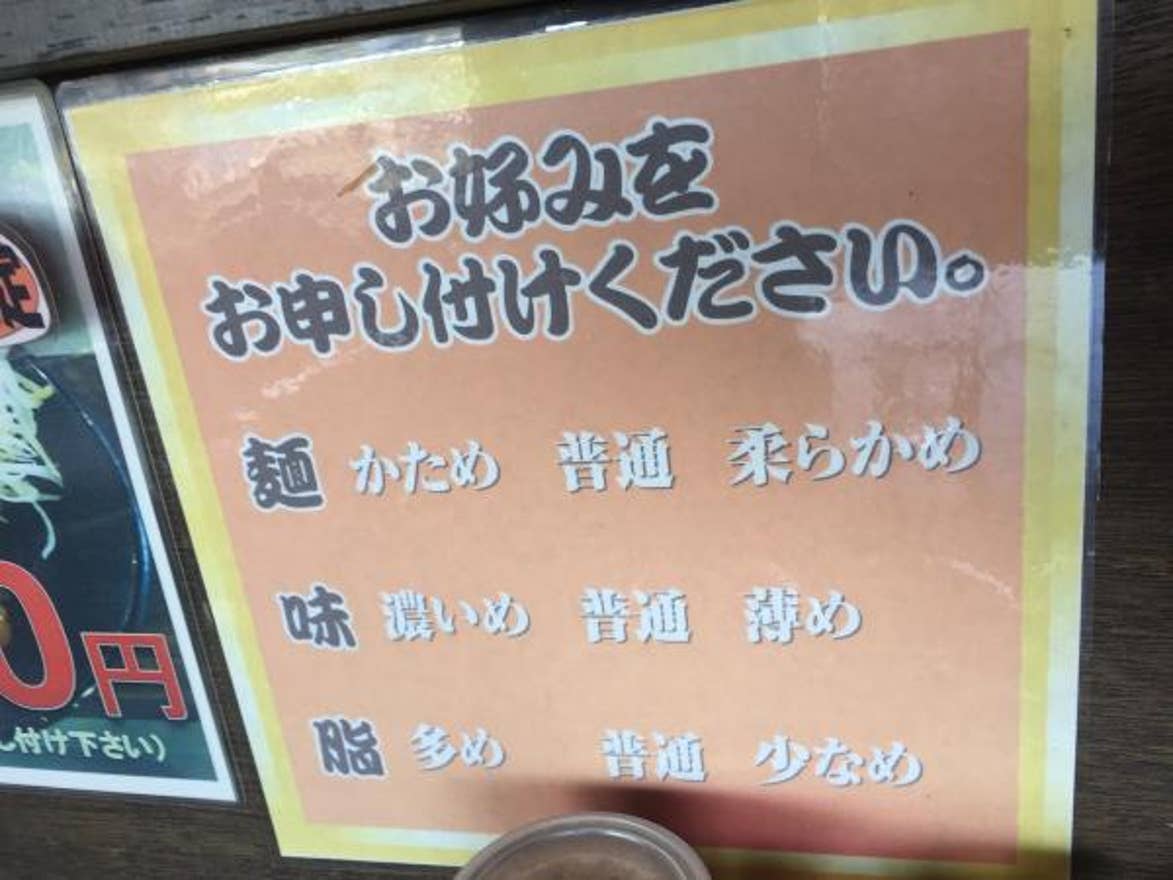 お好みを
お申し付けください。
麺 かため 普通 柔らかめ
味 濃いめ 普通 薄め
脂 多め 普通 少なめ
定
0円
し付け下さい)